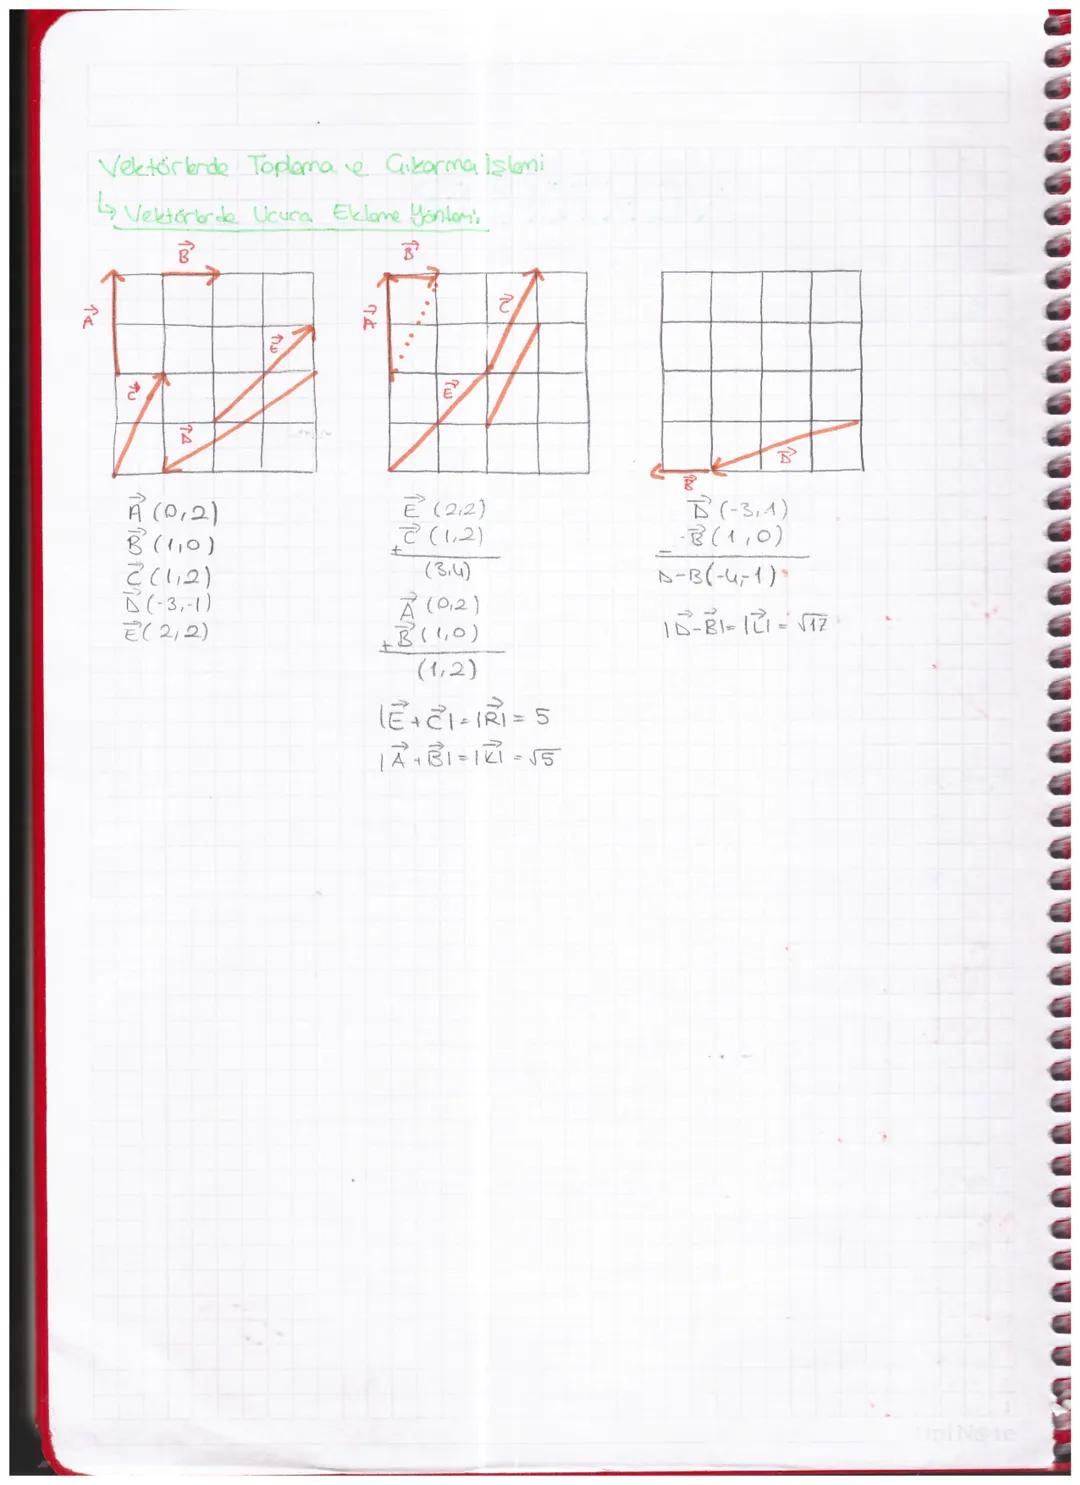 Vektörlerde Toplama ve Çıkarma İşlemi
↳ Vektörlerde Ucuca Ekleme Yöntemi
B⃗
A⃗
C⃗
D⃗
E⃗
A⃗ (0,2)
B⃗ (1,0)
C⃗ (1,2)
D⃗ (-3,-1)
E⃗ (2,2)
B⃗
A⃗
C⃗
E⃗
E⃗ (2,2)
+ C⃗ (1,2)
(3,4)
A⃗ (0,2)
+ B⃗ (1,0)
(1,2)
|E⃗ + C⃗| = |R⃗| = 5
|A⃗ + B⃗| = |K⃗| = √5
D⃗
B⃗
D⃗ (-3,1)
- -B⃗ (1,0)
D-B (-4,-1)
|D⃗-B⃗| = |L⃗| = √17